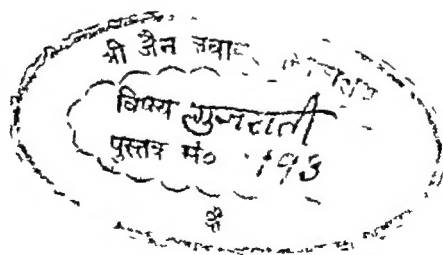 श्री जैन जवाहर
विषय गुजराती
पुस्तक सं० 193
श्री